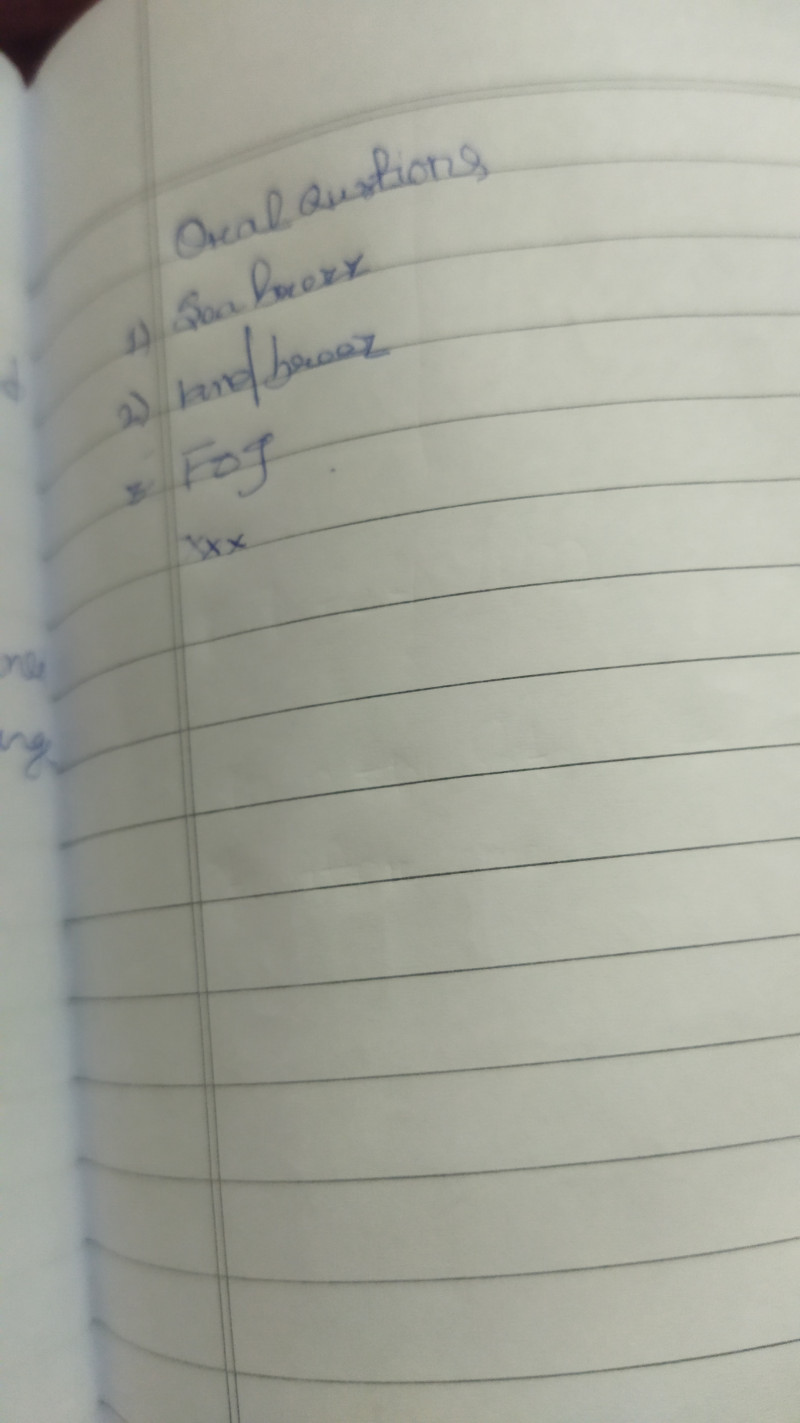 Oral Qustions
1) Sea breezz
2) land breez
3 Fog
xxx
d
ng